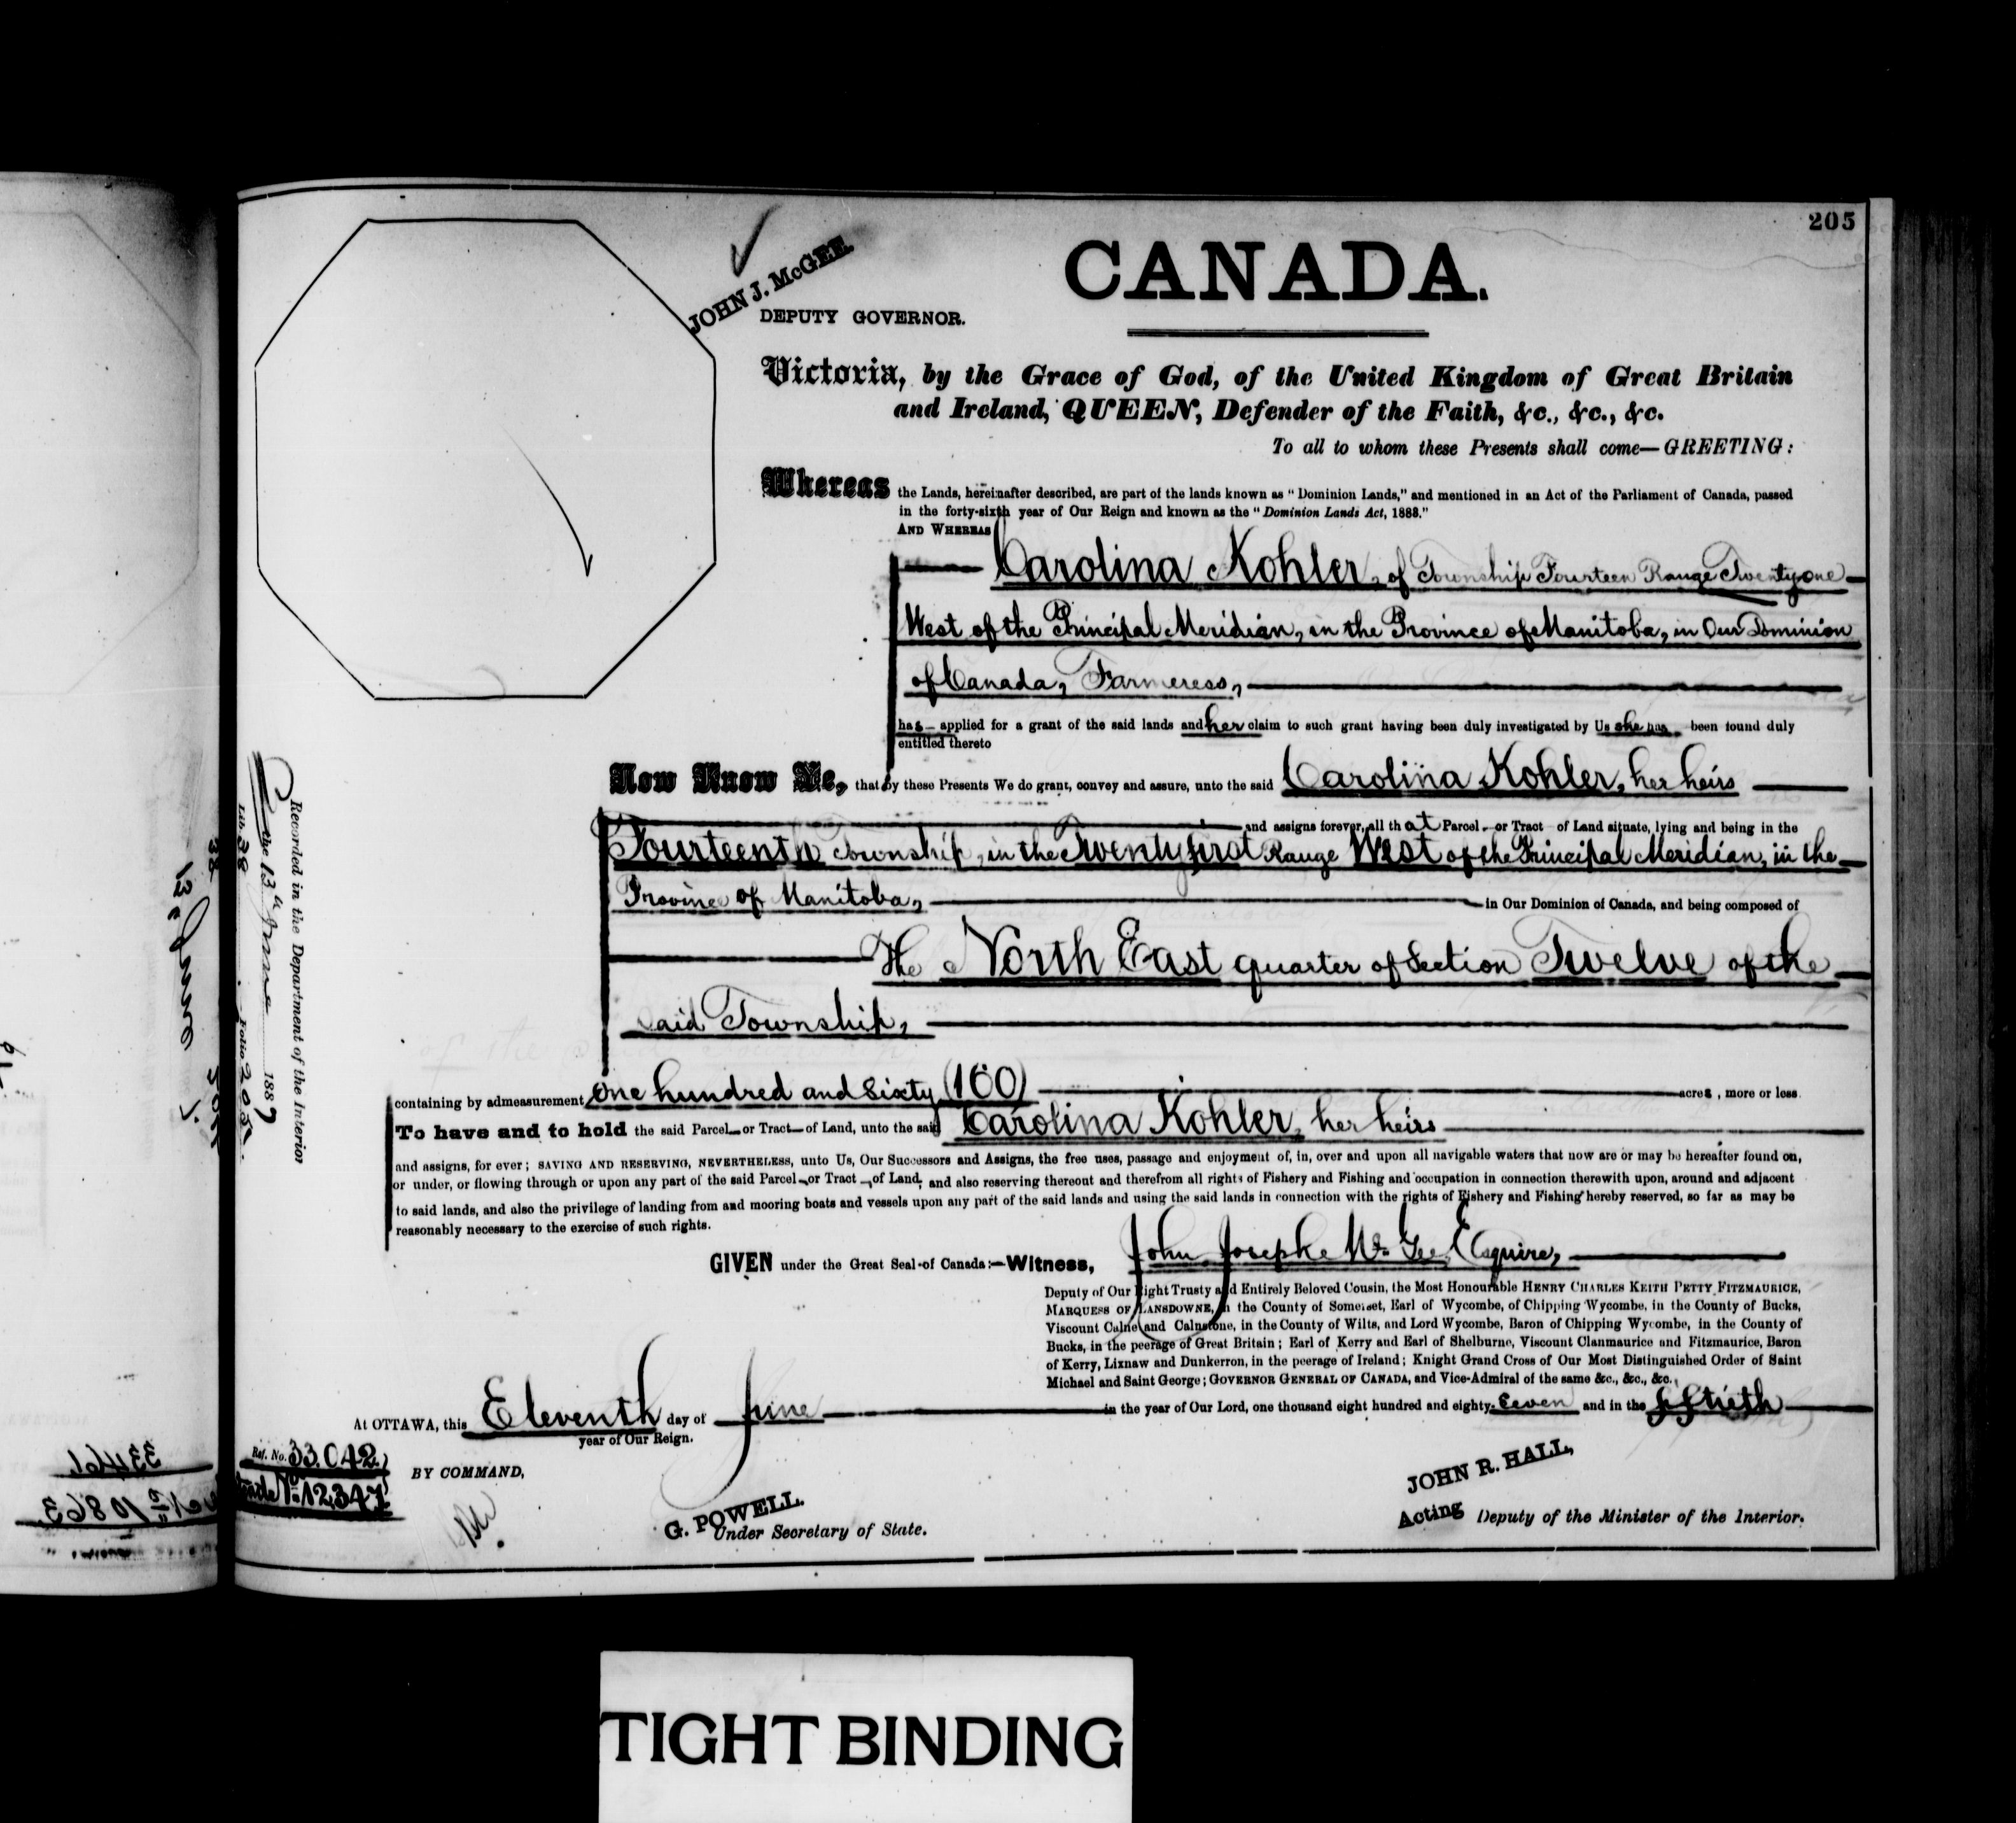 205
JOHN J. McGEE.
DEPUTY GOVERNOR.
CANADA.
Victoria, by the Grace of God, of the United Kingdom of Great Britain
and Ireland, QUEEN, Defender of the Faith, &c., &c., &c.
To all to whom these Presents shall come—GREETING:
Whereas the Lands, hereinafter described, are part of the lands known as "Dominion Lands," and mentioned in an Act of the Parliament of Canada, passed
in the forty-sixth year of Our Reign and known as the "Dominion Lands Act, 1883."
AND WHEREAS
Carolina Kohler, of Township Fourteen Range Twenty one
West of the Principal Meridian, in the Province of Manitoba, in Our Dominion
of Canada, Farmeress,
has applied for a grant of the said lands and her claim to such grant having been duly investigated by Us she has been found duly
entitled thereto
Now Know Ye, that by these Presents We do grant, convey and assure, unto the said Carolina Kohler, her heirs
and assigns forever, all that Parcel or Tract of Land situate, lying and being in the
Fourteenth Township, in the Twenty first Range West of the Principal Meridian, in the
Province of Manitoba, in Our Dominion of Canada, and being composed of
The North East quarter of Section Twelve of the
said Township,
containing by admeasurement One hundred and Sixty (160) acres, more or less.
To have and to hold the said Parcel or Tract of Land, unto the said Carolina Kohler, her heirs
and assigns, for ever; SAVING AND RESERVING, NEVERTHELESS, unto Us, Our Successors and Assigns, the free uses, passage and enjoyment of, in, over and upon all navigable waters that now are or may be hereafter found on,
or under, or flowing through or upon any part of the said Parcel or Tract of Land; and also reserving thereout and therefrom all rights of Fishery and Fishing and occupation in connection therewith upon, around and adjacent
to said lands, and also the privilege of landing from and mooring boats and vessels upon any part of the said lands and using the said lands in connection with the rights of Fishery and Fishing hereby reserved, so far as may be
reasonably necessary to the exercise of such rights.
GIVEN under the Great Seal of Canada:—Witness, John Josephe McGee, Esquire,
Deputy of Our Right Trusty and Entirely Beloved Cousin, the Most Honourable HENRY CHARLES KEITH PETTY FITZMAURICE,
MARQUESS OF LANSDOWNE, in the County of Somerset, Earl of Wycombe, of Chipping Wycombe, in the County of Bucks,
Viscount Calne and Calnstone, in the County of Wilts, and Lord Wycombe, Baron of Chipping Wycombe, in the County of
Bucks, in the peerage of Great Britain; Earl of Kerry and Earl of Shelburne, Viscount Clanmaurice and Fitzmaurice, Baron
of Kerry, Lixnaw and Dunkerron, in the peerage of Ireland; Knight Grand Cross of Our Most Distinguished Order of Saint
Michael and Saint George; GOVERNOR GENERAL OF CANADA, and Vice-Admiral of the same &c., &c., &c.
At OTTAWA, this Eleventh day of June in the year of Our Lord, one thousand eight hundred and eighty-Seven and in the fiftieth
year of Our Reign.
Ref. No. 33.042
No 12,347
BY COMMAND,
G. POWELL.
Under Secretary of State.
JOHN R. HALL,
Acting Deputy of the Minister of the Interior.
Recorded in the Department of the Interior
the 13th June 1887
Lib 38 Folio 205
TIGHT BINDING